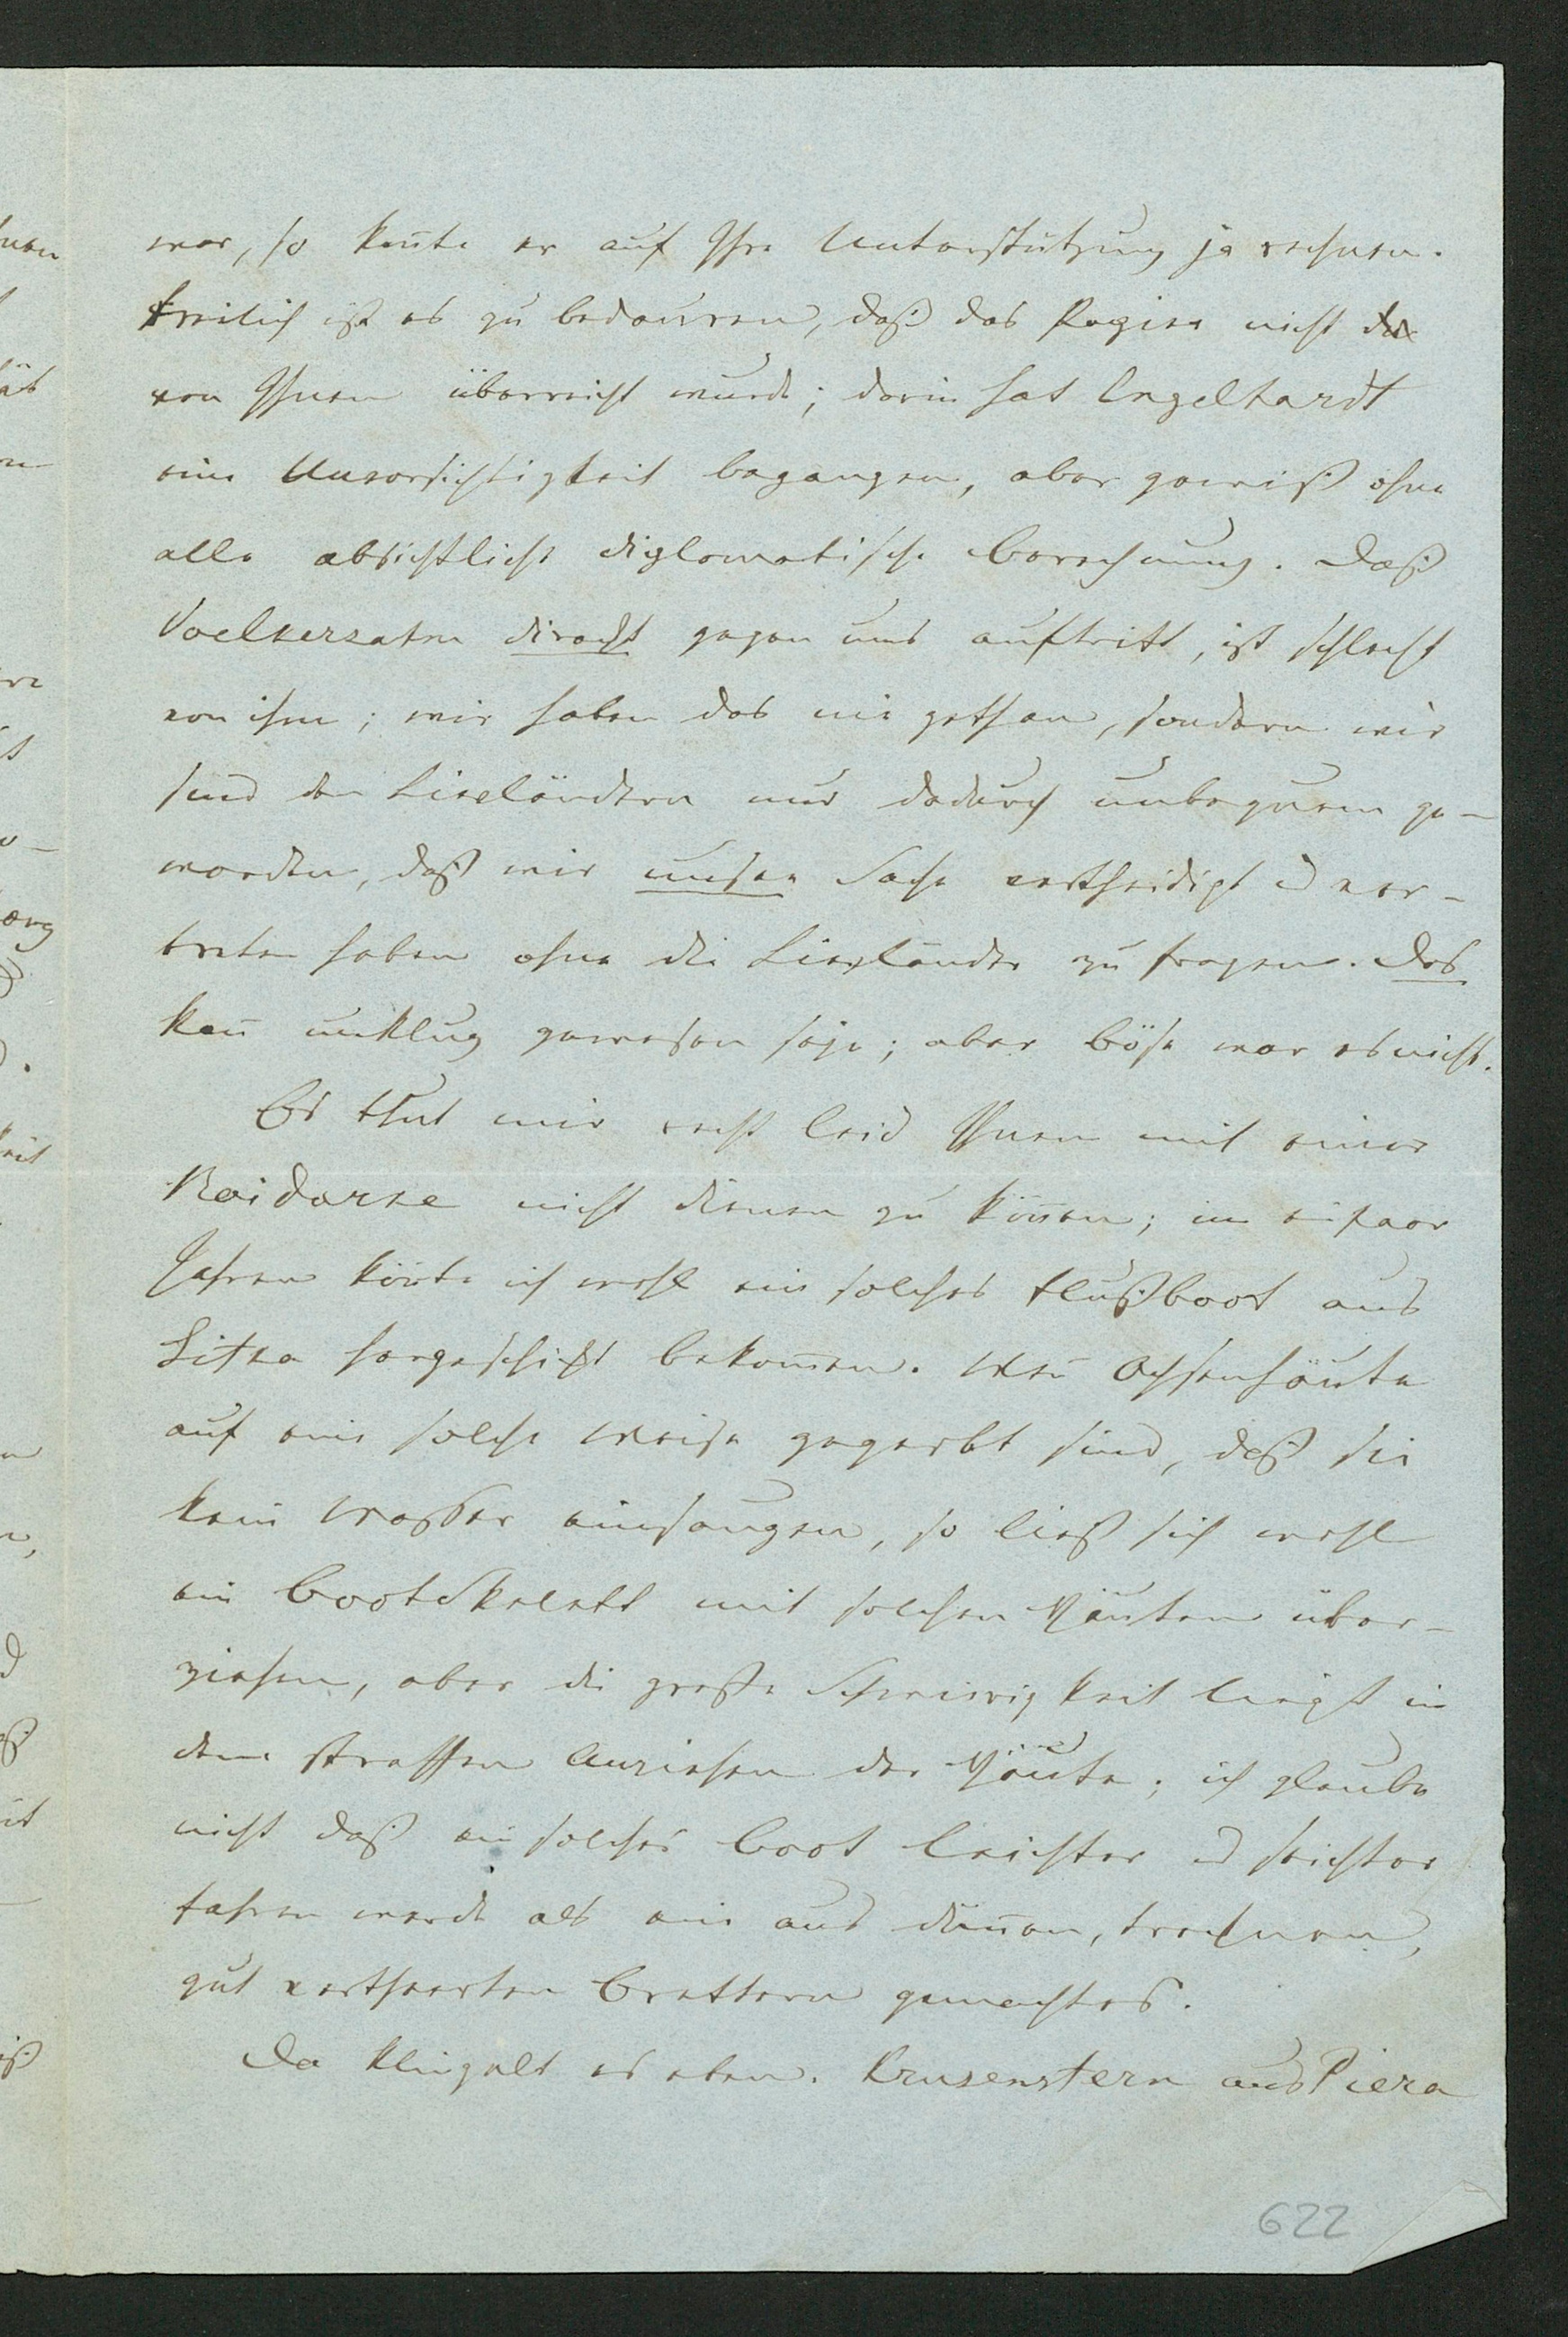 war, so konnte er auf Ihre Unterstützung ja rechnen.
Freilich ist es zu bedauren, daß das Papier nicht
von Ihnen überreicht wurde; darin hat Engelhardt
eine Unvorsichtigkeit begangen, aber gewiß ohne
alle absichtliche diplomatische Berechnung. Daß
Voelkersahm direckt gegen uns auftritt, ist schlecht
von ihm; wir haben das nie gethan, sondern wir
sind den Livländern nur dadurch unbequem ge-
worden, daß wir unsere Sache vertheidigt u ver-
treten haben ohne die Livländer zu fragen. Das
kañ unklug gewesen seyn; aber böse war es nicht.
Es thut mir recht leid Ihnen mit einer
Baidarke nicht dienen zu köñen; in ein paar
Jahren köñte ich wohl ein solches Flußboot aus
Sitka hergeschickt bekom̄en. Weñ Ochsenhäute
auf eine solche Weise gegerbt sind, daß sie
kein Wasser einsaugen, so ließe sich wohl
ein Bootskelett mit solchen Häuten über-
ziehen, aber die große Schwierigkeit liegt in
dem straffen Anziehen der Häute; ich glaube
nicht daß ein solches Boot leichter u seichter
fahren werde als ein aus düñen, trocknen,
gut vertheerten Brettern gemachtes.
Da klingelt es eben. Krusenstern aus Piera
622